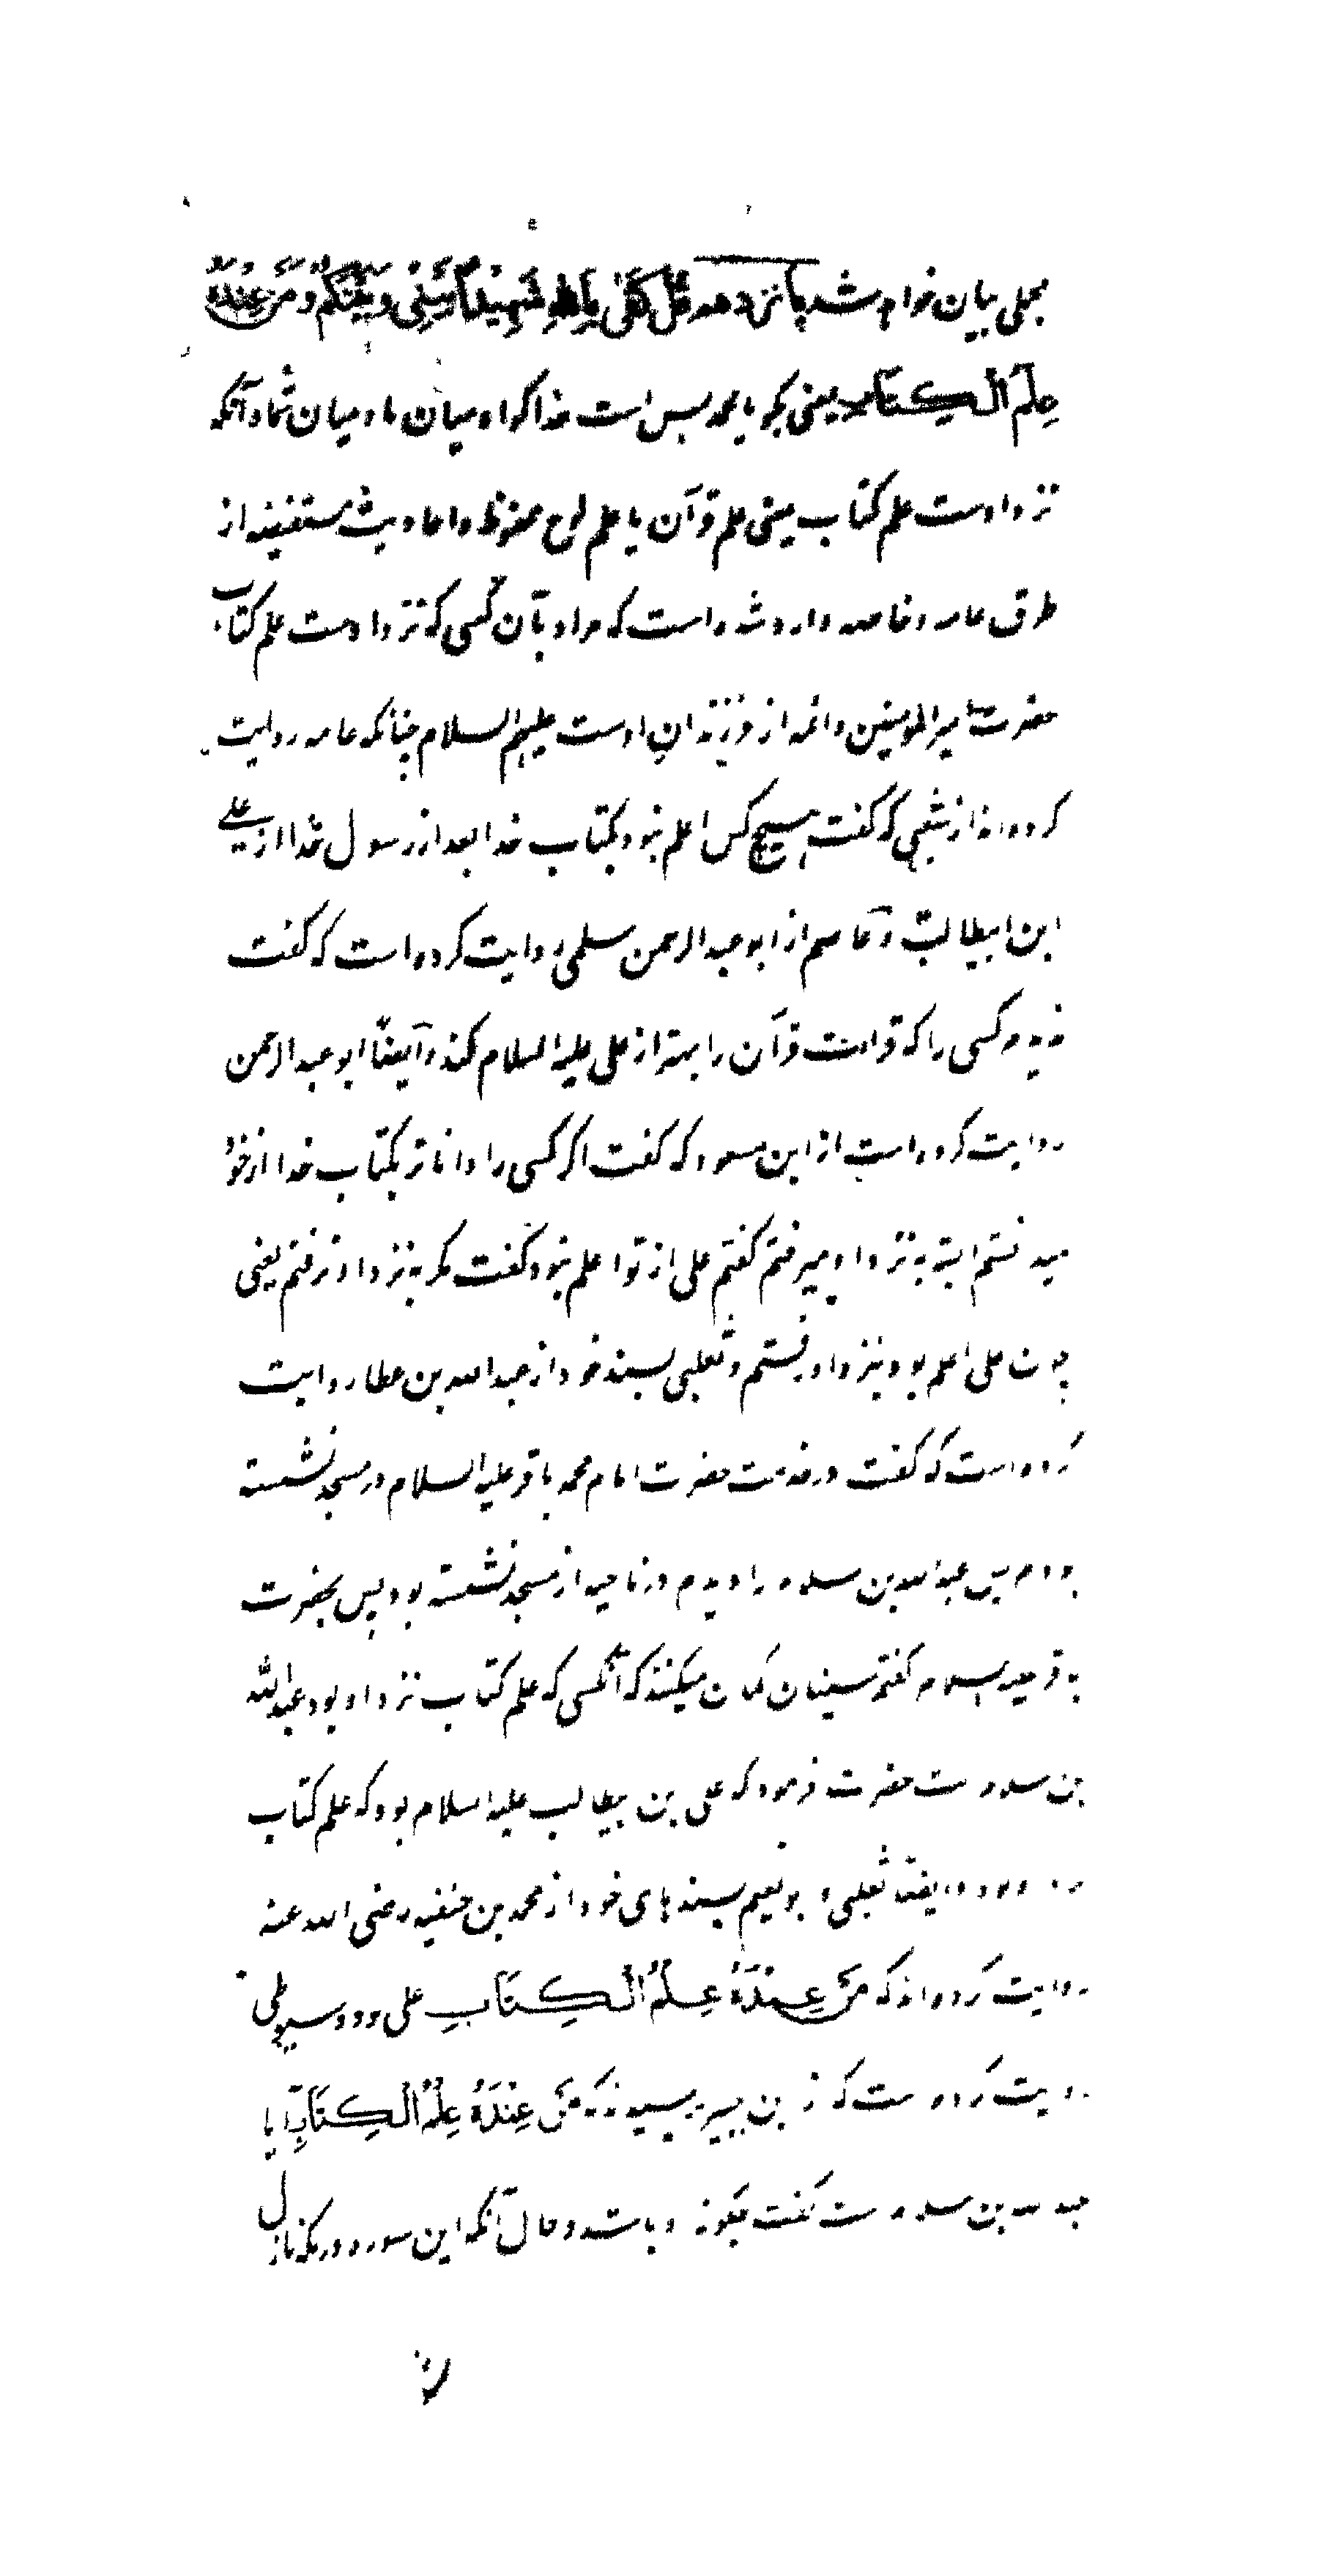 مجملی بیان خواهد شد پانزدهم قُلْ كَفَىٰ بِاللهِ شَهِيدًا بَيْنِي وَبَيْنَكُمْ وَمَنْ عِنْدَهُ
عِلْمُ الْكِتَابِ یعنی بگو یا محمد بس است خدا گواه میان ما و میان شما و آنکه
نزد اوست علم کتاب یعنی علم قرآن یا علم لوح محفوظ و احادیث مستفیضه از
طرق عامه و خاصه وارد شده است که مراد بآن کسی که نزد اوست علم کتاب
حضرت امیرالمؤمنین و ائمه از فرزندان اوست علیهم السلام چنانکه عامه روایت
کرده اند از شعبی که گفت هیچ کس اعلم نبود بکتاب خدا بعد از رسول خدا از علی
ابن ابیطالب و عاصم از ابو عبدالرحمن سلمی روایت کرده است که گفت
ندیدم کسی را که قرائت قرآن را بهتر از علی علیه السلام کند و ایضًا ابو عبدالرحمن
روایت کرده است از ابن مسعود که گفت اگر کسی را داناتر بکتاب خدا از خود
میدانستم البته به نزد او میرفتم گفتم علی از تو اعلم نبود گفت مگر به نزد او نرفتم یعنی
چون علی اعلم بود بنزد او رفتم و ثعلبی بسند خود از عبدالله بن عطا روایت
کرده است که گفت در خدمت حضرت امام محمد باقر علیه السلام در مسجد نشسته
بودم پس عبدالله بن سلام را دیدم در ناحیه از مسجد نشسته بود پس بحضرت
باقر علیه السلام گفتم سنیان گمان میکنند که آنکسی که علم کتاب نزد او بود عبدالله
بن سلام است حضرت فرمود که علی بن ابیطالب علیه السلام بود که علم کتاب
نزد او بود و ایضًا ثعلبی و ابونعیم بسندهای خود از محمد بن حنفیه رضی الله عنه
روایت کرده اند که مَنْ عِنْدَهُ عِلْمُ الْكِتَابِ علی بود و سیوطی
روایت کرده است که از ابن جبیر پرسیدند که مَنْ عِنْدَهُ عِلْمُ الْكِتَابِ آیا
عبدالله بن سلام است گفت چگونه او باشد و حال آنکه این سوره در مکه نازل